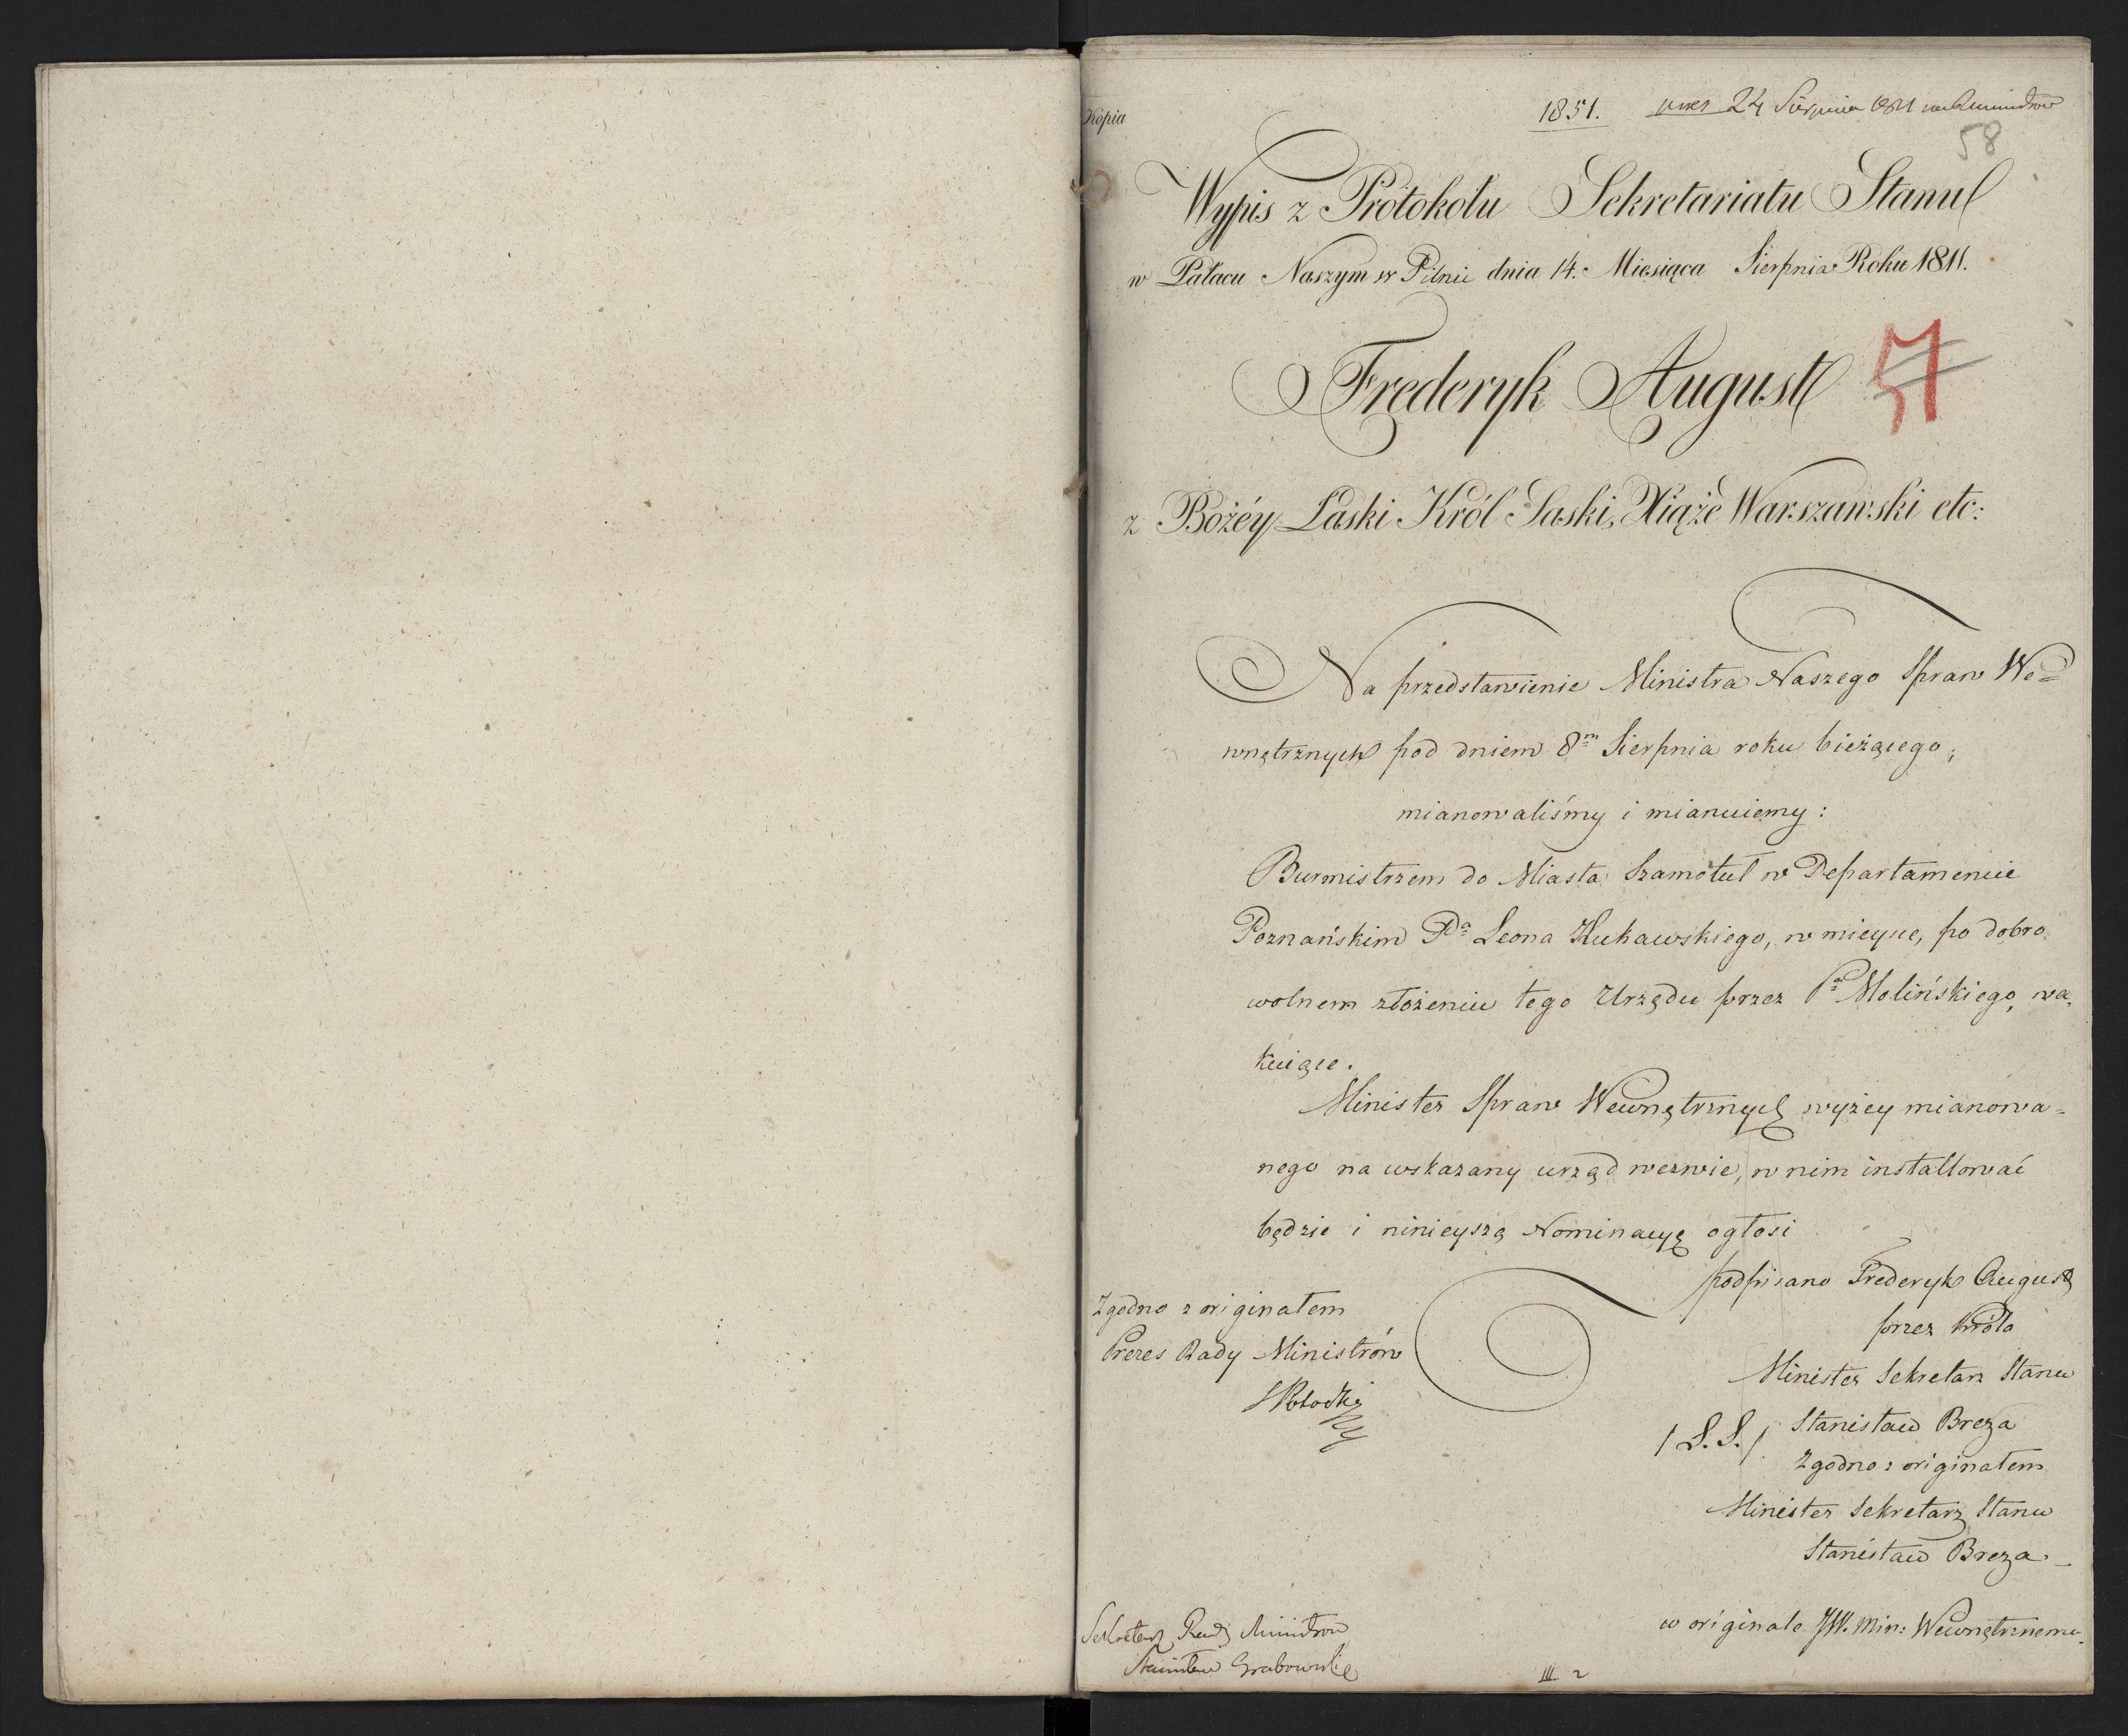 Kopia
1851. 24 Sierpnia 1811
58
Wypis z Protokołu Sekretariatu Stanu
w Pałacu Naszym w Pilnic dnia 14. Miesiąca Sierpnia Roku 1811.
Frederyk August
57
z Bożéy Łaski Król Saski, Xiąże Warszawski etc:
Na przedstawienie Ministra Naszego Spraw We=
wnętrznych pod dniem 8m Sierpnia roku bieżącego;
mianowaliśmy i mianuiemy:
Burmistrzem do Miasta Szamotuł w Departamencie
Poznańskim Pa Leona Żukawskiego, w mieysce, po dobro
wolnem złożeniu tego Urzędu przez Pa Molińskiego, wa=
kuiące.
Minister Spraw Wewnętrznych wyżey mianowa=
nego na wskazany urząd wezwie, w nim installować
będzie i ninieyszą Nominacyę ogłosi
podpisano Frederyk August
przez Króla
Minister Sekretarz Stanu
/L.S./ Stanisław Breza
Zgodno z originałem
Minister Sekretarz Stanu
Stanisław Breza
Zgodno z originałem
Prezes Rady Ministrów
S Potocki
Sekretarz Rady Ministrów
Stanisław Grabowski
w originale JW. Min: Wewnętrznemu
III 2